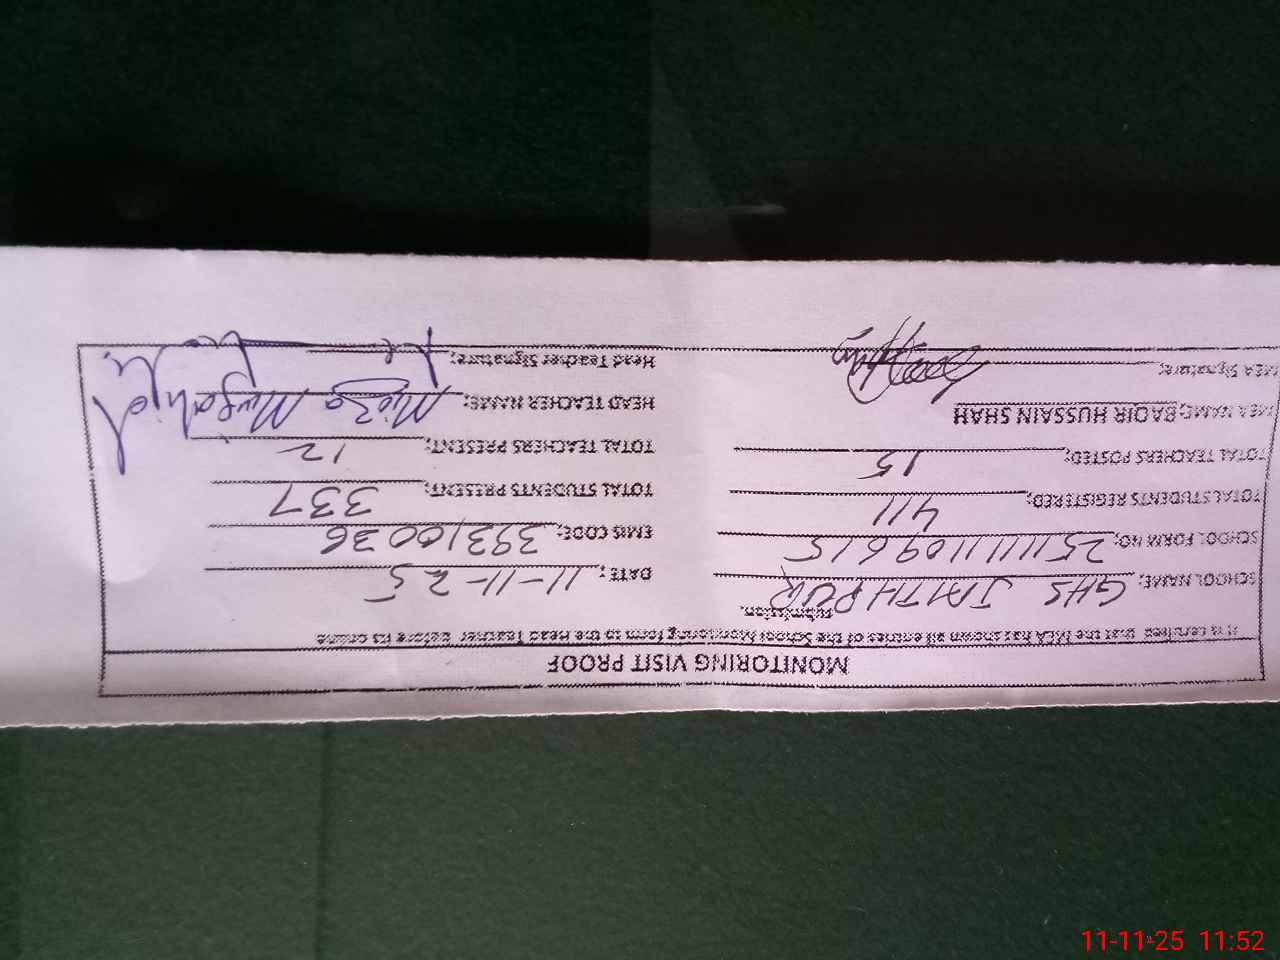 MONITORING VISIT PROOF
It is certified that the MEA has shown all entries of the School Monitoring form to the Head Teacher before its online submission.
SCHOOL NAME: GHS JAITHPUR DATE: 11-11-25
SCHOOL FORM NO: 25111111109615 EMIS CODE: 39310036
TOTAL STUDENTS REGISTERED: 411 TOTAL STUDENTS PRESENT: 337
TOTAL TEACHERS POSTED: 15 TOTAL TEACHERS PRESENT: 12
MEA NAME: BAQIR HUSSAIN SHAH HEAD TEACHER NAME: Mirza
MEA Signature: Head Teacher Signature:
11-11-25 11:52